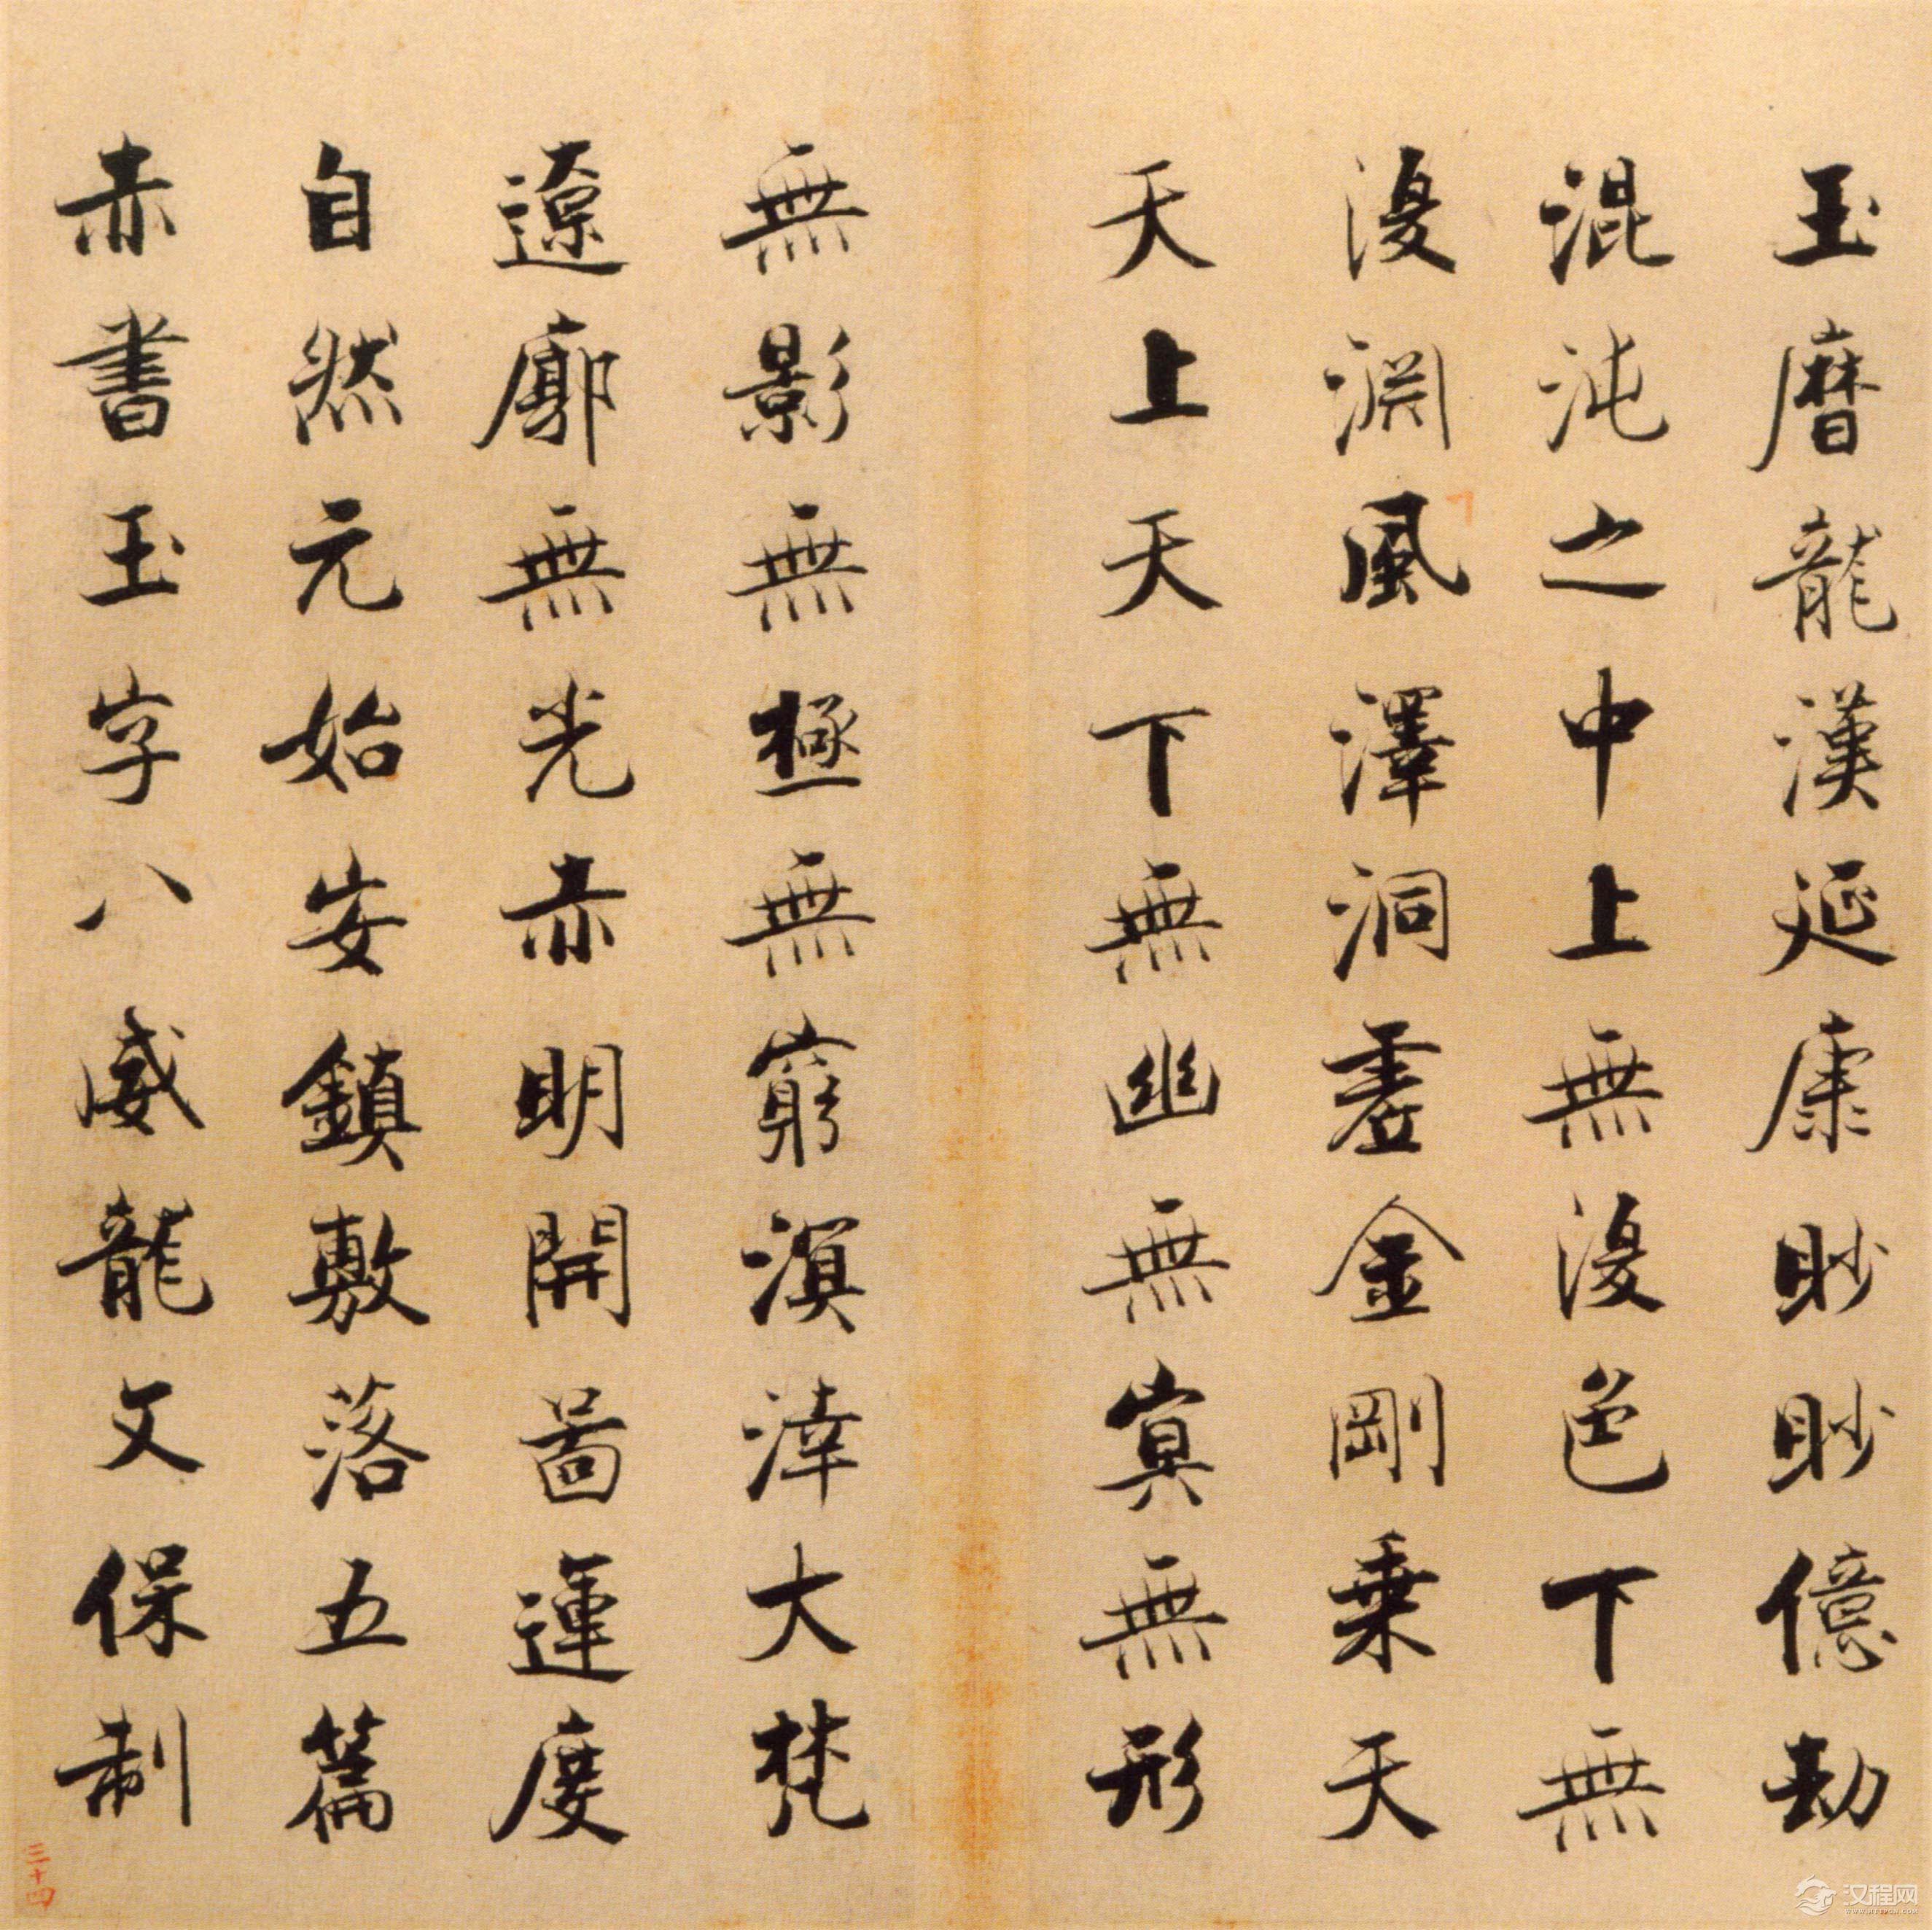 玉曆龍漢延康眇眇億劫
混沌之中上無復色下無
復淵風澤洞虛金剛乗天
天上天下無幽無冥無形
無影無極無窮溟涬大梵
遼廓無光赤明開啚運度
自然元始安鎮敷落五篇
赤書玉字八威龍文保制
三十四
汉程网